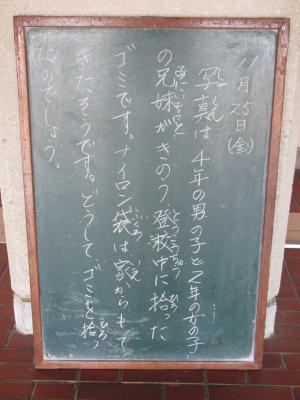 11月25日(金)
写真は、4年の男の子と2年の女の子
の兄妹がきのう登校中に拾った
ゴミです。ナイロン袋は家からもって
きたそうです。どうして、ゴミを拾っ
たのでしょう。